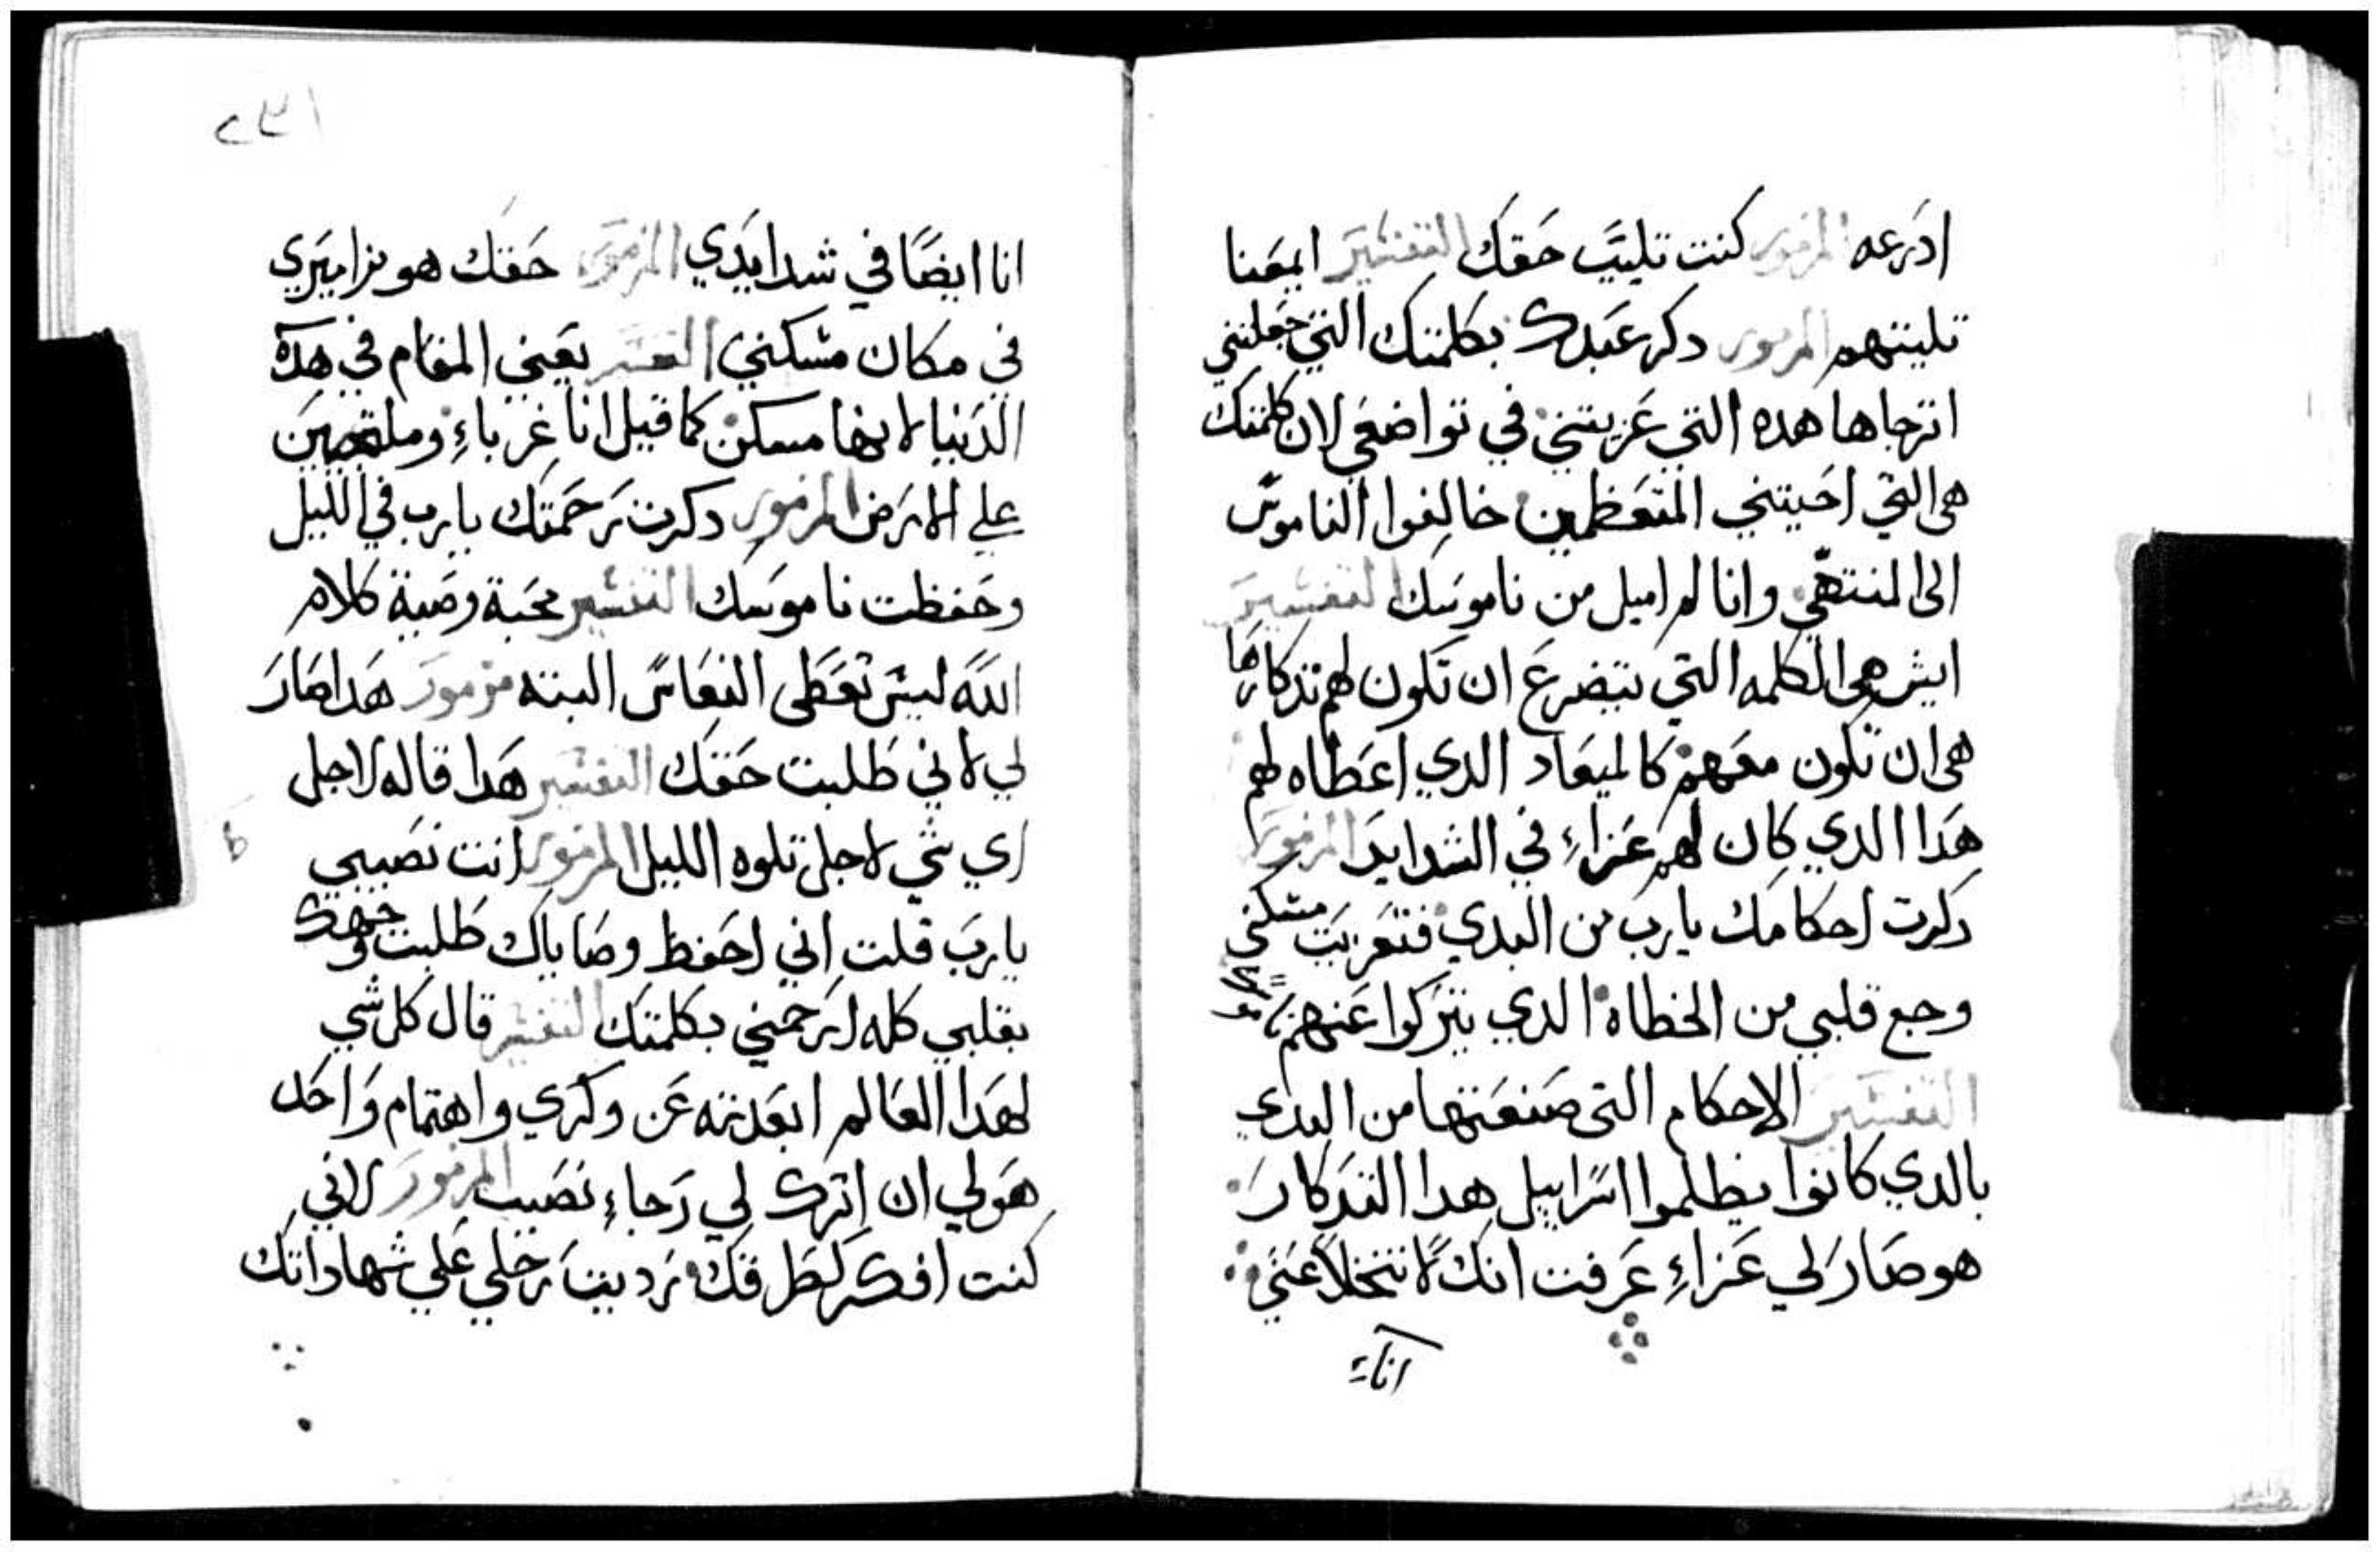 ادرعه المزمور كنت تليت حقك التفسير ايمعنا
تليتهم المزمور دكر عبدك بكلمتك التي جعلتني
اترجاها هده التي عزيتني في تواضعي لان كلمتك
هي التي احيتني المتعظمين خالفوا الناموس
الى المنتهى وانا لم اميل من ناموسك التفسير
ايش هي الكلمه التي يتضرع ان تكون لهم تدكارها
هي ان تكون معهم كالميعاد الدي اعطاه لهم
هدا الدي كان لهم عزاء في الشدايد المزمور
دكرت احكامك يارب من البدي فتعزيت مسكني
وجع قلبي من الخطاه الدي يتركوا عنهم
التفسير الاحكام التي صنعتها من البدي
بالدي كانوا يظلموا اسراييل هدا التدكار
هو صار لي عزاء عرفت انك لا تتخلا عني
انا
٢٣١
انا ايضا في شدايدي المزمور حقك هو مزاميري
في مكان مسكني التفسير يعني المقام في هده
الدنيا لانها مسكن كما قيل انا غرباء وملتجيين
علي الارض المزمور دكرت رحمتك يارب في الليل
وحفظت ناموسك التفسير محبة وصية كلام
الله ليس تعطى النعاس البته مزمور هدا صار
لي لاني طلبت حقك التفسير هدا قاله لاجل
اي شي لاجل تلوه الليل المزمور انت نصيبي
يارب قلت اني احفظ وصاياك طلبت وجهك
بقلبي كله ارحمني بكلمتك التفسير قال كل شي
لهدا العالم ابعدته عن وكري واهتمام واحد
هو لي ان اترك لي رجاء نصيب المزمور لاني
كنت افكر لطرقك رديت رجلي علي شهاداتك